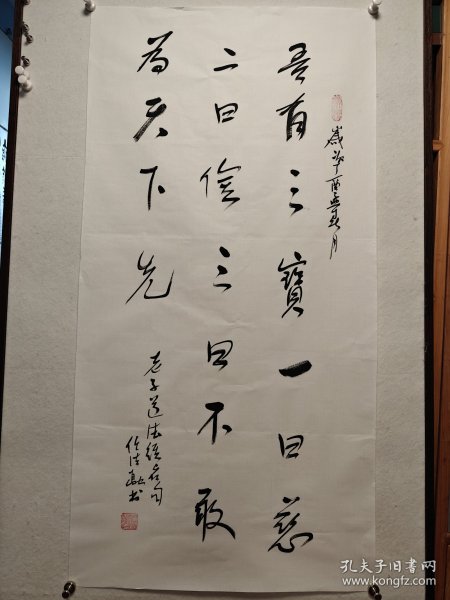 歲次丁酉年秋月
吾有三寶一曰慈
二曰儉三曰不敢
為天下先
老子道德經名句
書
孔夫子旧书网
www.kongfz.com